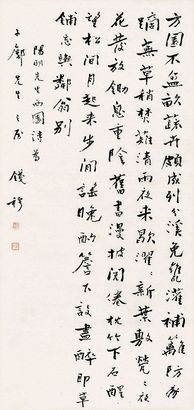 方園不盈畝蔬卉頗成列分溪免甕灌補籬防豕
蹢蕪草稍焚薙清雨夜來歇濯〻新葉敷熒〻夜
花發放鋤息重陰舊書漫披閱倦枕竹下石醒
望松間月起來步閒謠晚酌簷下設盡醉即草
鋪忘與鄰翁別
陽明先生西園詩為
先生之屬
錢穆